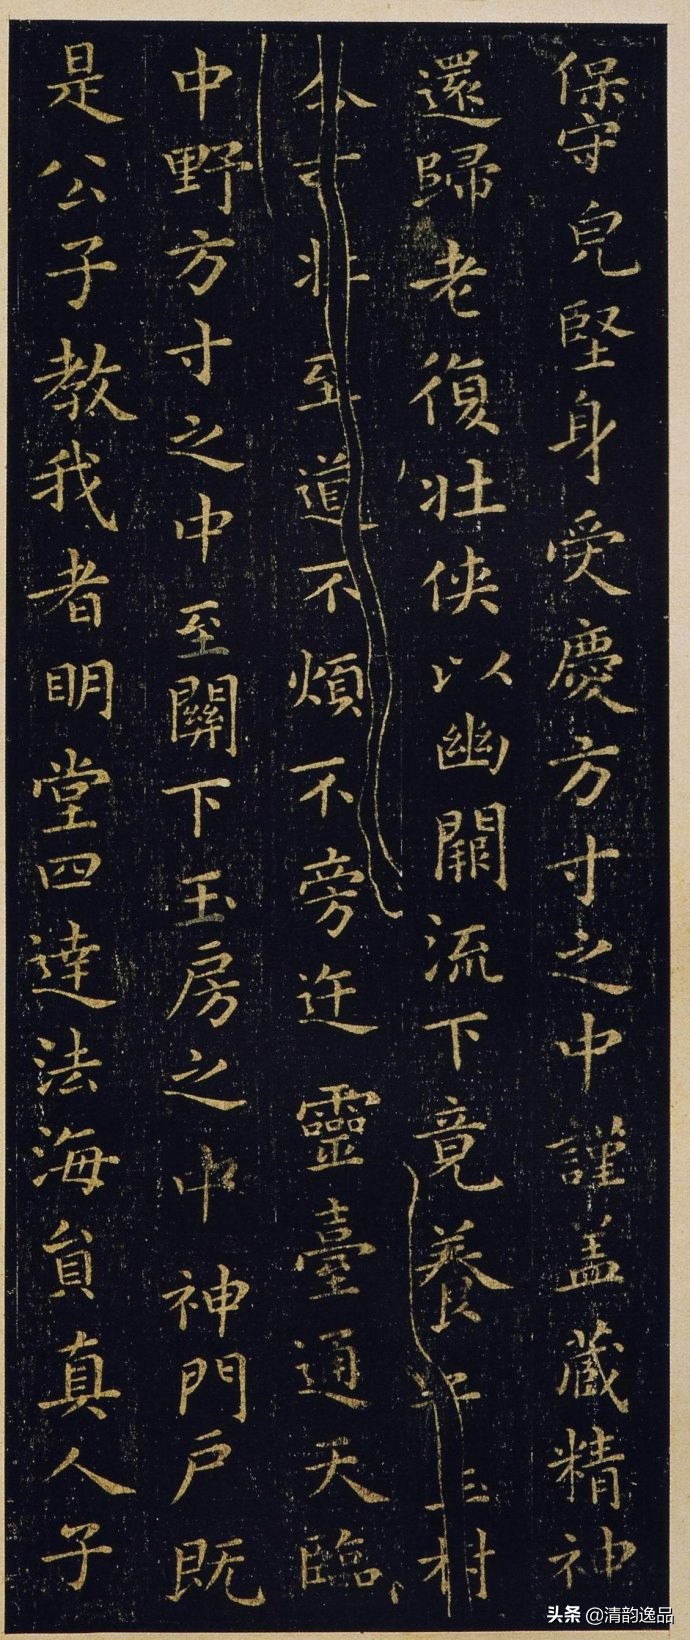 保守皃堅身受慶方寸之中謹盖藏精神
還歸老復壯侠以幽關流下竟養玉樹
不可壯至道不煩不旁迕靈臺通天臨
中野方寸之中至關下玉房之中神門户既
是公子教我者明堂四達法海員真人子
头条 @清韵逸品